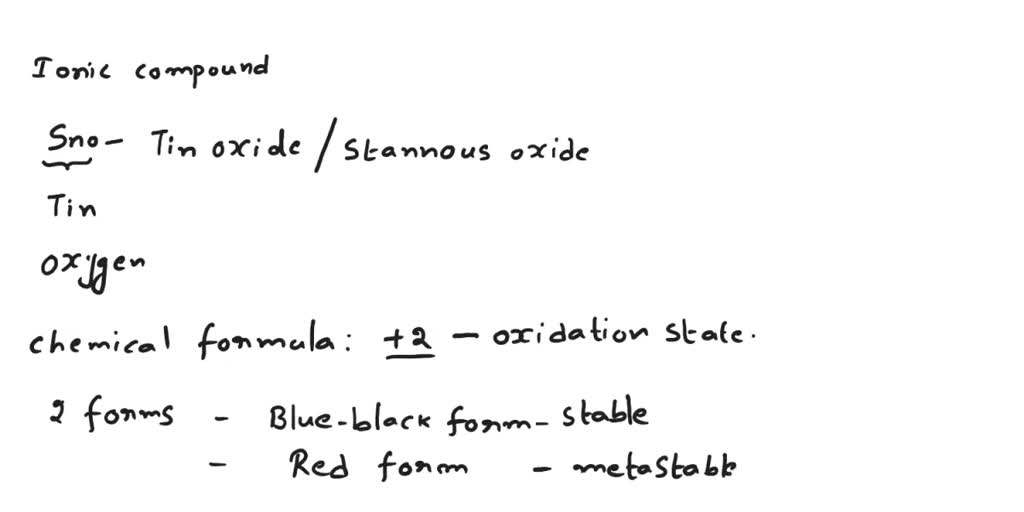 Ionic compound
Sno - Tin oxide / Stannous oxide
Tin
oxygen
chemical formula: +2 - oxidation state.
2 forms - Blue-black form - stable
- Red form - metastable